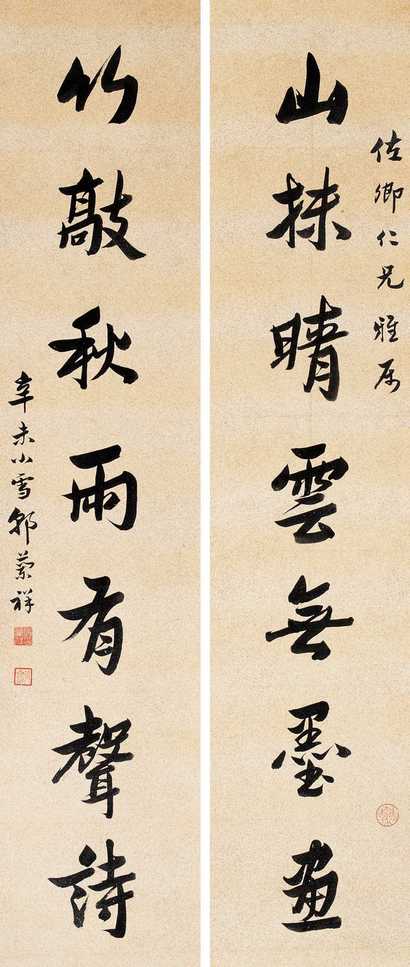 佐卿仁兄雅属
山抹晴雲無墨畫
竹敲秋雨有聲詩
辛未小雪郭蘭祥